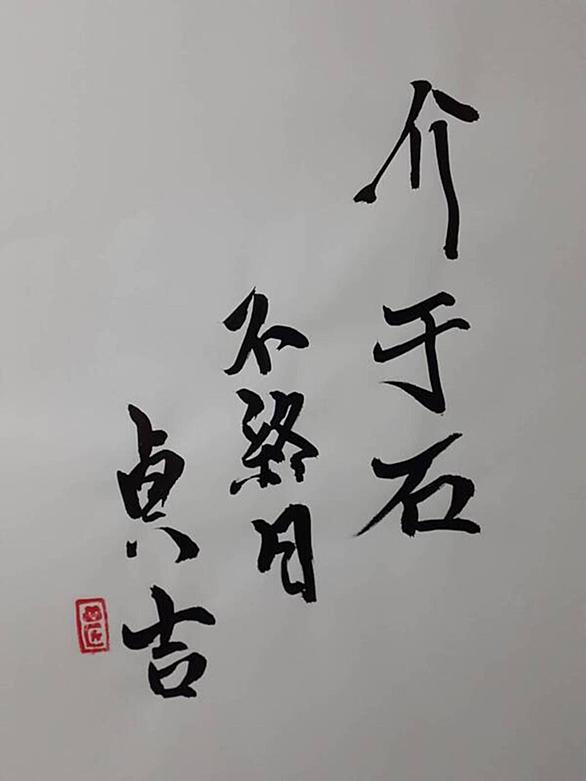 介于石
不終日
貞吉